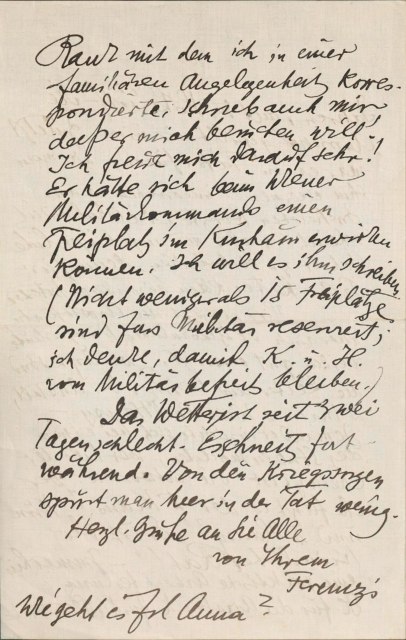 Rank mit dem ich in einer
familiären Angelegenheit korres-
pondierte, schrieb auch mir
daß er mich besuchen will.
Ich freue mich darauf sehr!
Er hätte sich beim Wiener
Militärkommando einen
Freiplatz im Kurhaus erwirken
können. Ich will es ihm schreiben
(Nicht weniger als 18 Freiplätze
sind fürs Militär reserviert;
ich denke, damit K. u. H.
vom Militär befreit bleiben.)
Das Wetter ist seit zwei
Tagen schlecht. Es schneit fort
während. Von den Kriegssorgen
spürt man hier in der Tat wenig.
Herzl. Grüße an Sie Alle
von Ihrem
Ferenczi
Wie geht es Frl Anna?